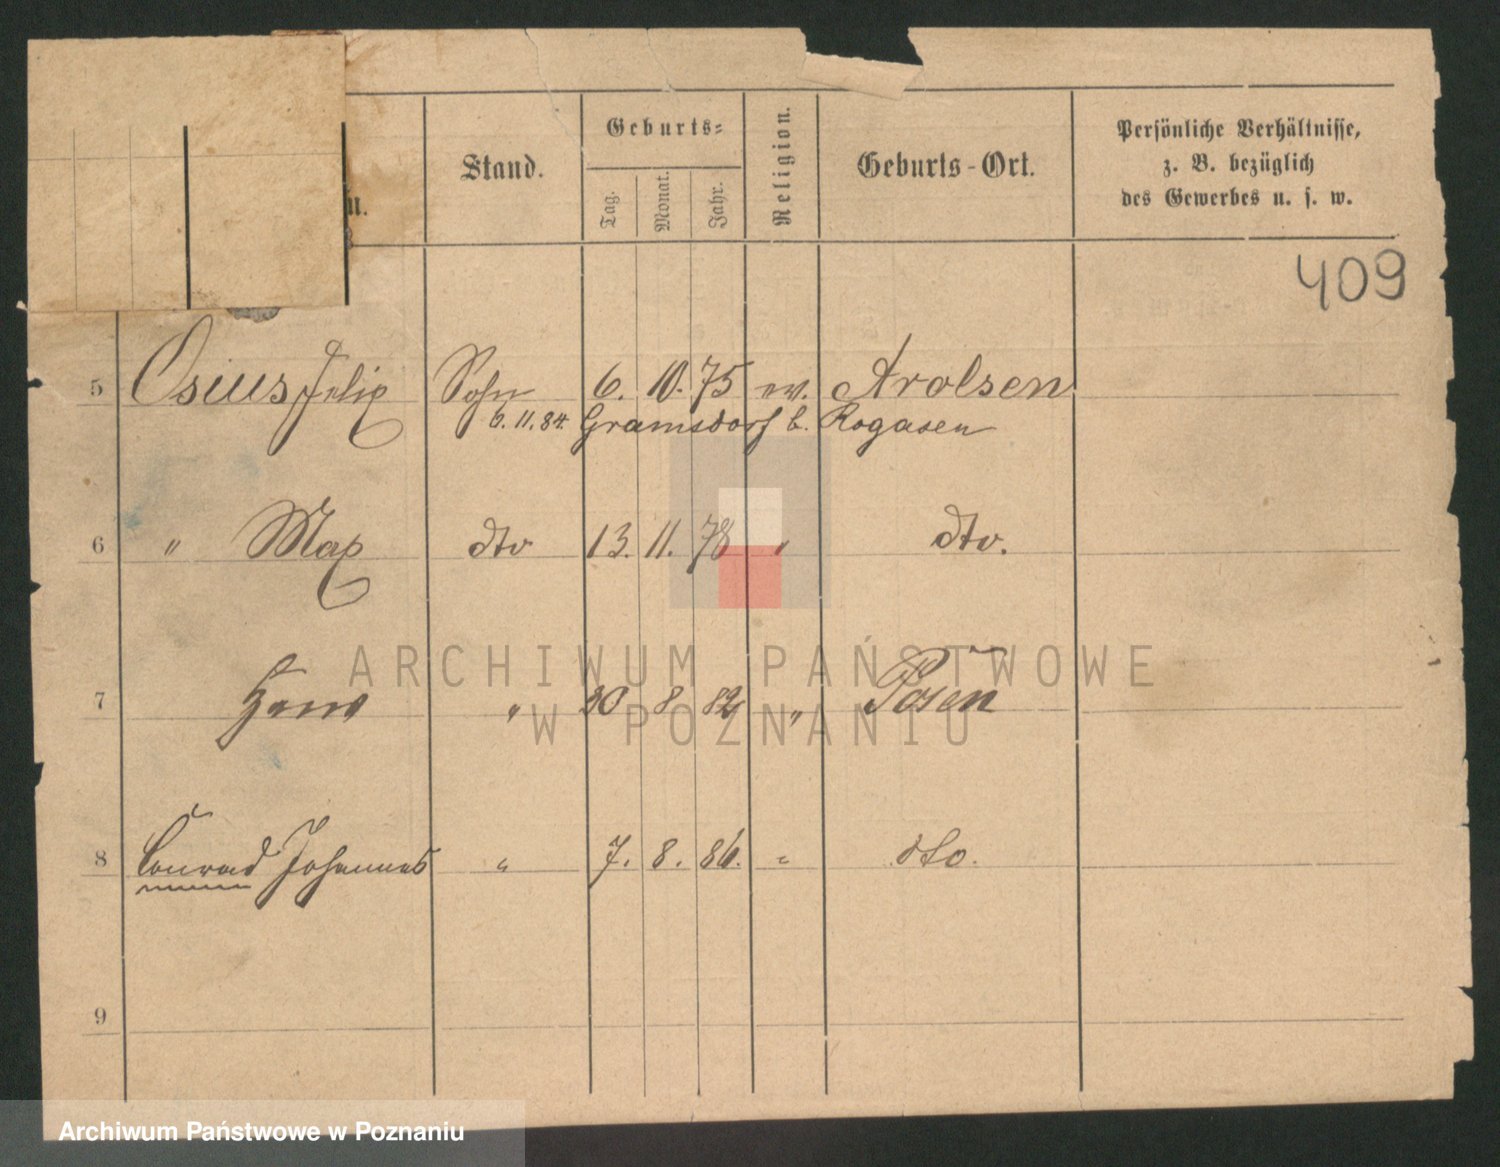 Stand.
Geburts-
Tag.
Monat.
Jahr.
Religion.
Geburts-Ort.
Persönliche Verhältnisse,
z. B. bezüglich
des Gewerbes u. s. w.
409
5 Osius Felix Sohn 6. 10. 75 ev. Arolsen
6. 11. 84. Gramsdorf b. Rogasen
6 " Max dto 13. 11. 78 " dto.
7 Hans " 20 8 82 " Posen
8 Conrad Johannes " 7. 8. 86. " dto.
9
ARCHIWUM PAŃSTWOWE
W POZNANIU
Archiwum Państwowe w Poznaniu